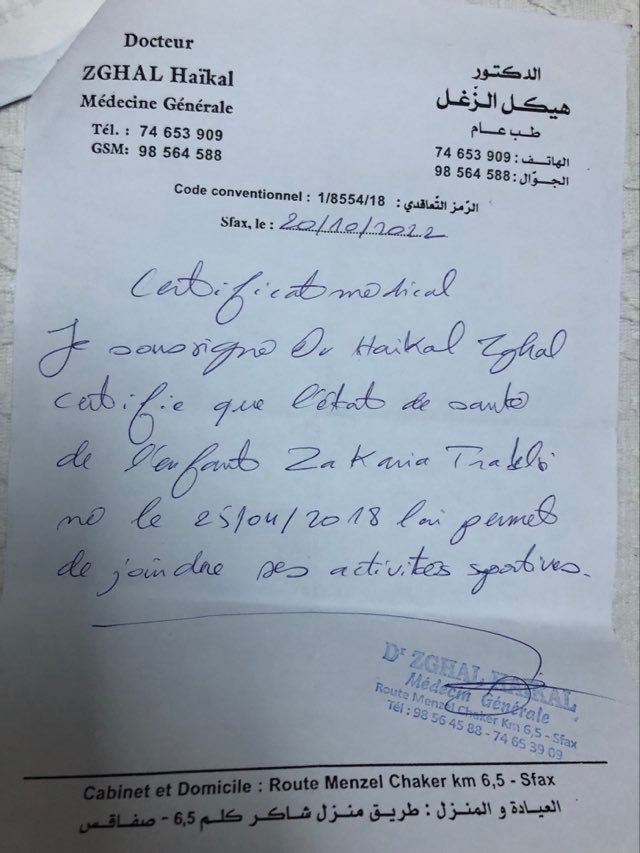 Docteur
ZGHAL Haïkal
Médecine Générale
Tél. : 74 653 909
GSM: 98 564 588
الدكتور
هيكل الزّغل
طب عام
الهاتف : 909 653 74
الجوّال : 588 564 98
Code conventionnel : 1/8554/18 : الرّمز التّعاقدي
Sfax, le : 20/10/2022
Certificat medical
Je soussigne Dr Haikal Zghal
certifie que l'état de santé
de l'enfant Zakaria
né le 25/04/2018 lui permet
de joindre ses activités sportives.
Dr ZGHAL HAIKAL
Médecin Générale
Route Menzel Chaker Km 6,5 - Sfax
Tél : 98 56 45 88 - 74 65 39 09
Cabinet et Domicile : Route Menzel Chaker km 6,5 - Sfax
العيادة و المنزل : طريق منزل شاكر كلم 6,5 - صفاقس